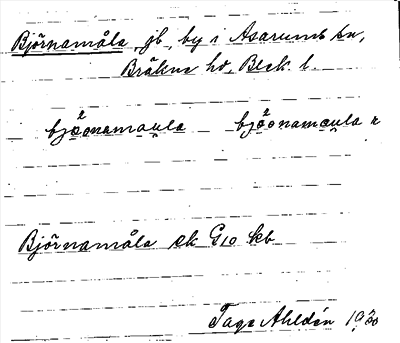 Björnamåla, jb, by i Asarums sn,
Bräkne hd, Blek. l.
bjöonamaula bjöonamaula
Björnamåla ek G10 kb
Tage Ahldén 1930